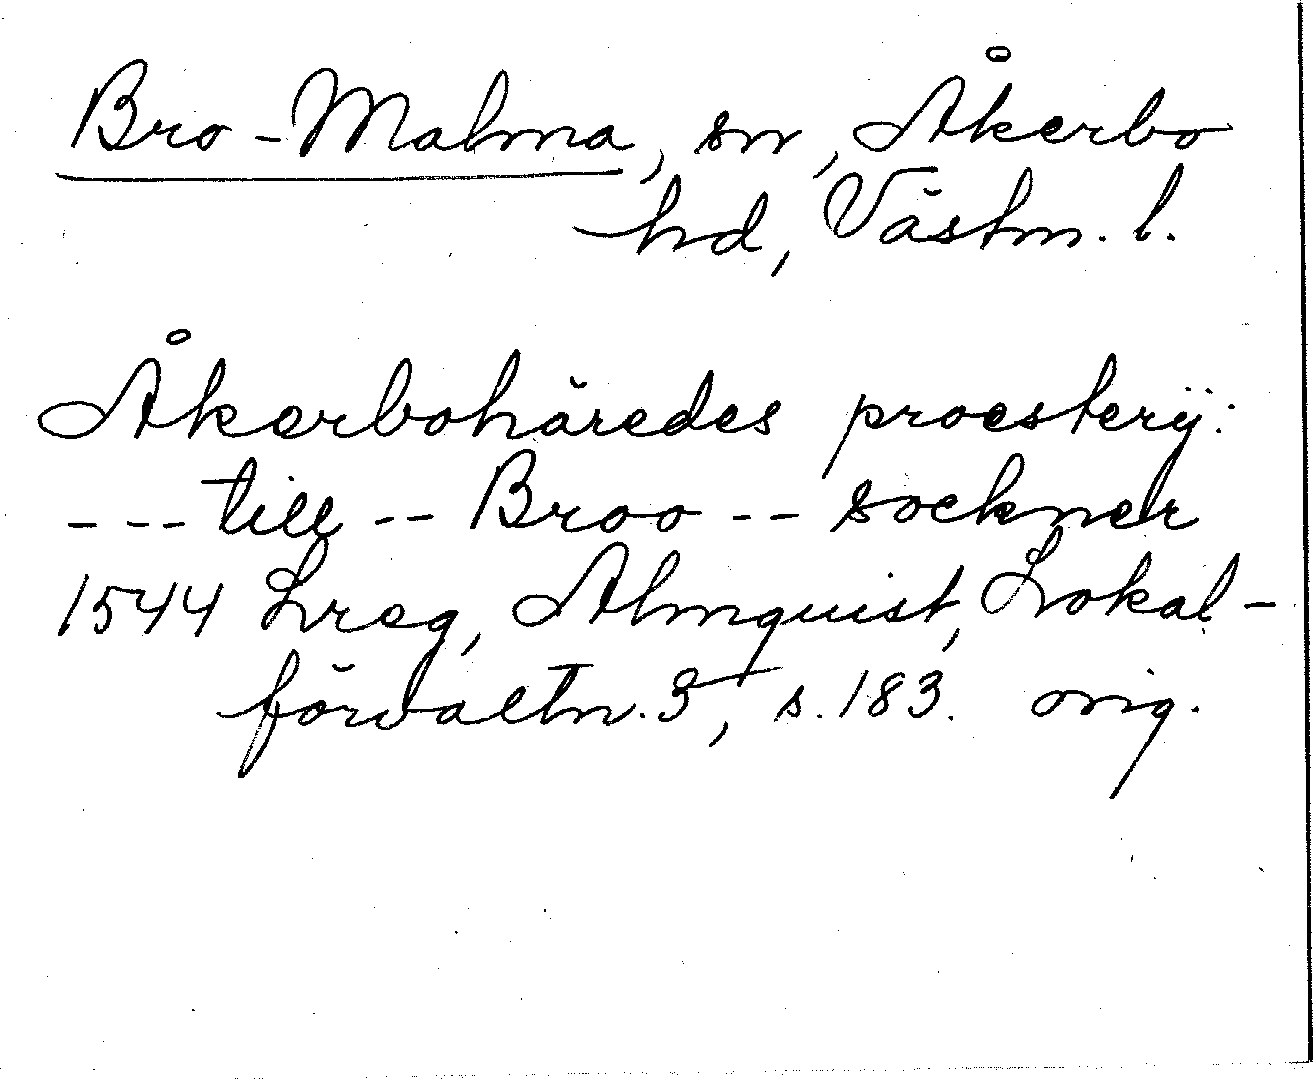 Bro-Malma, sn, Åkerbo
hd, Västm. l.
Åkerbohäredes proesterij:
--- till -- Broo -- sockner
1544 Lreg, Almquist, Lokal-
förvaltn. 3, s. 183. orig.